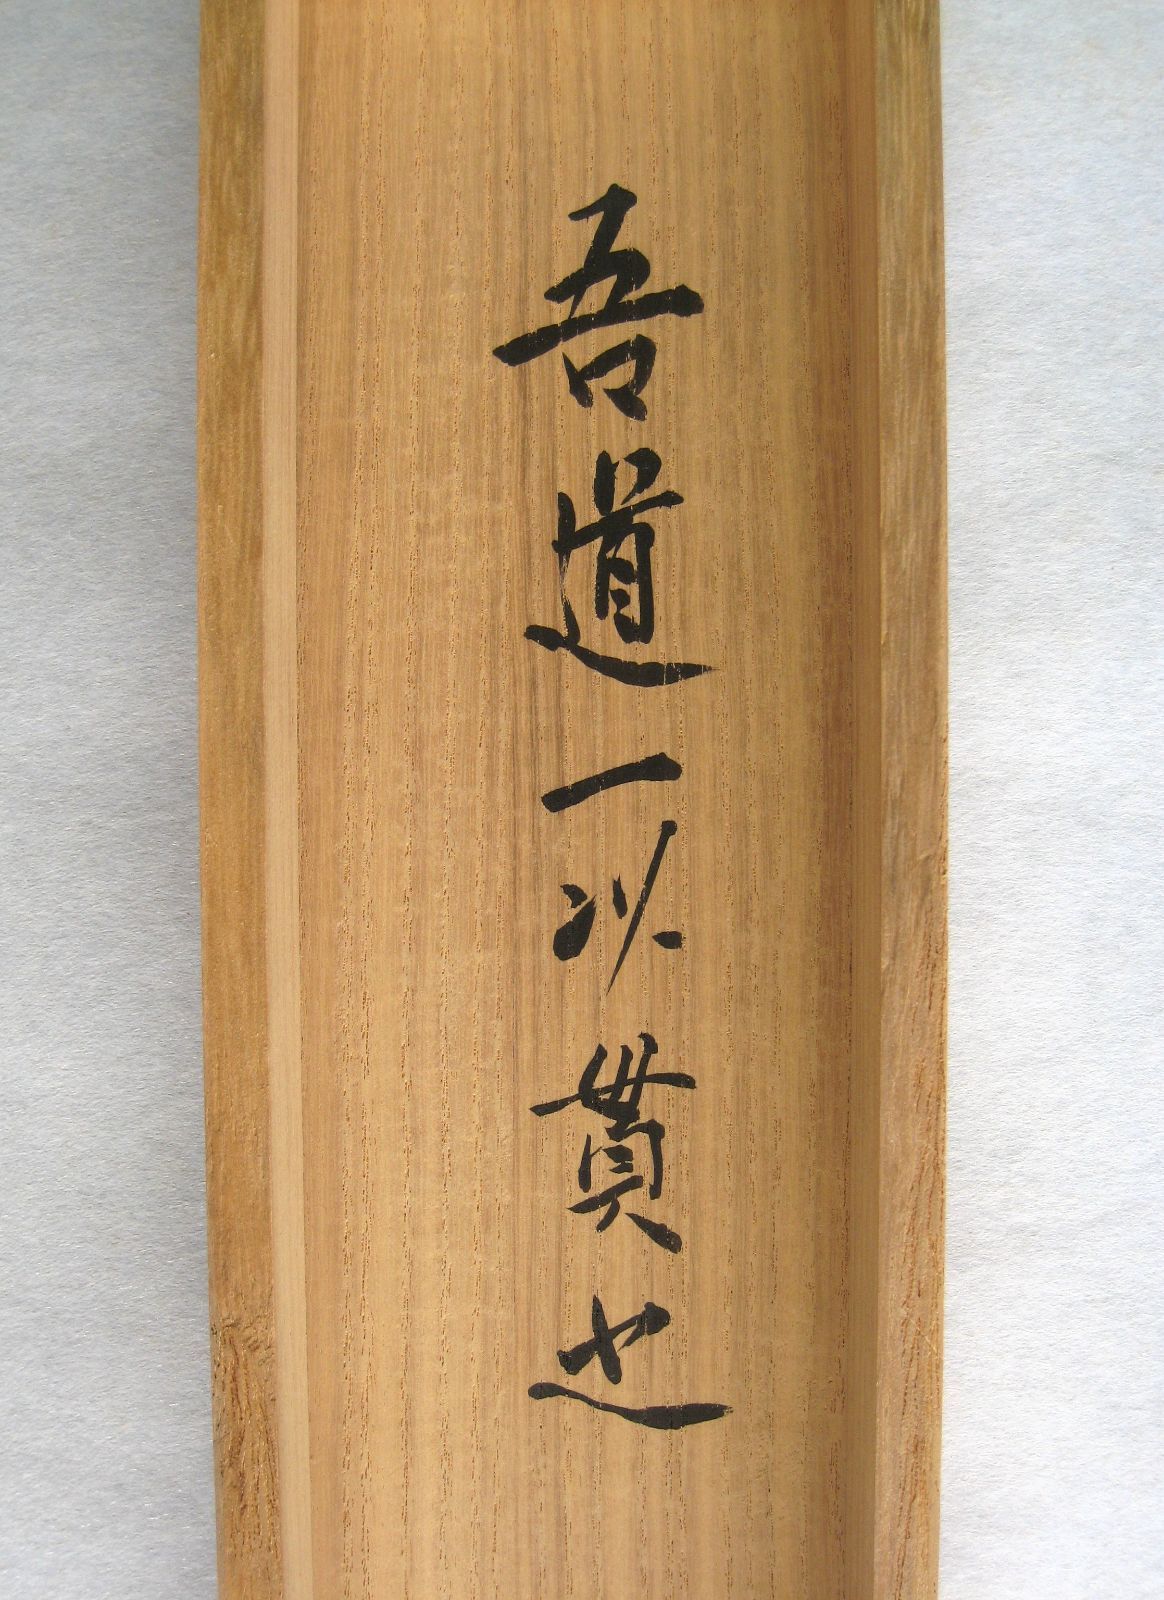 吾道一以貫也